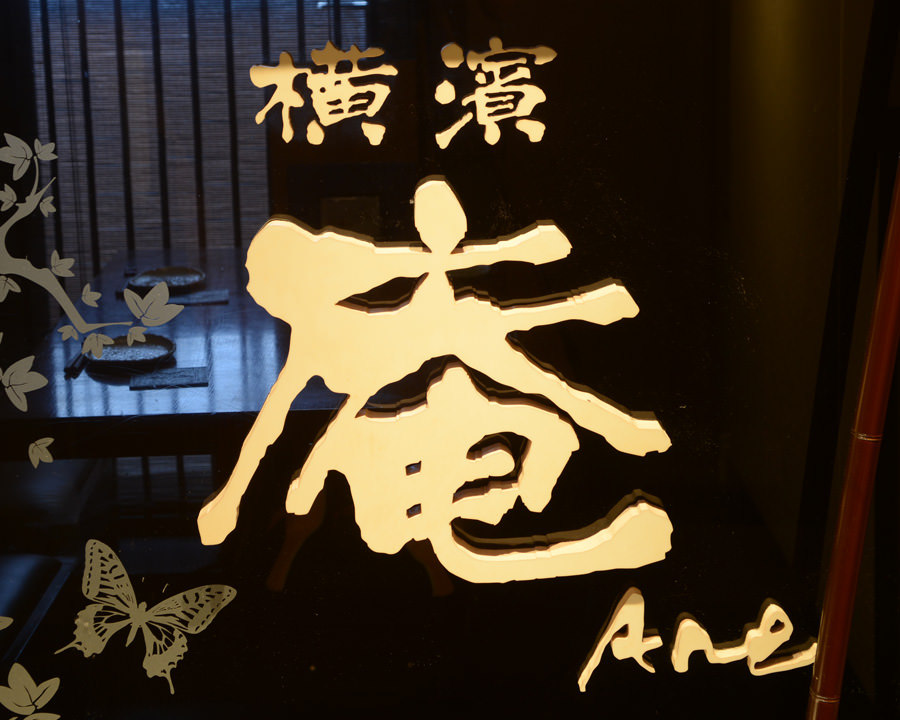 横濱
庵
Ane